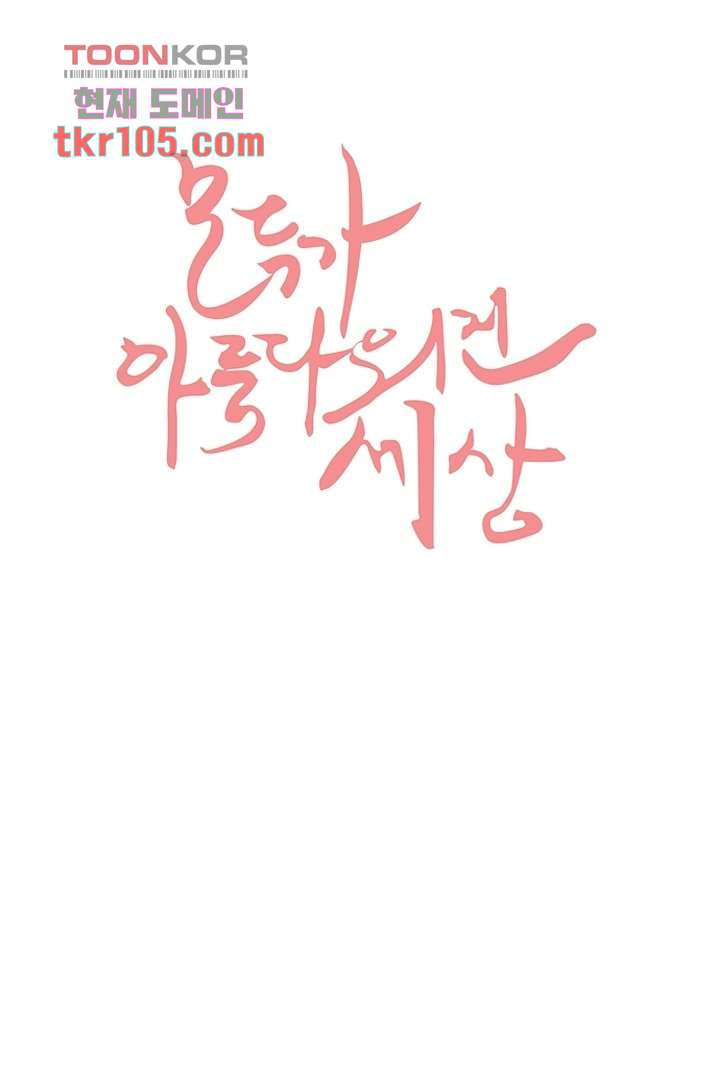 TOONKOR
현재 도메인
tkr105.com
모두가
아름다워진
세상